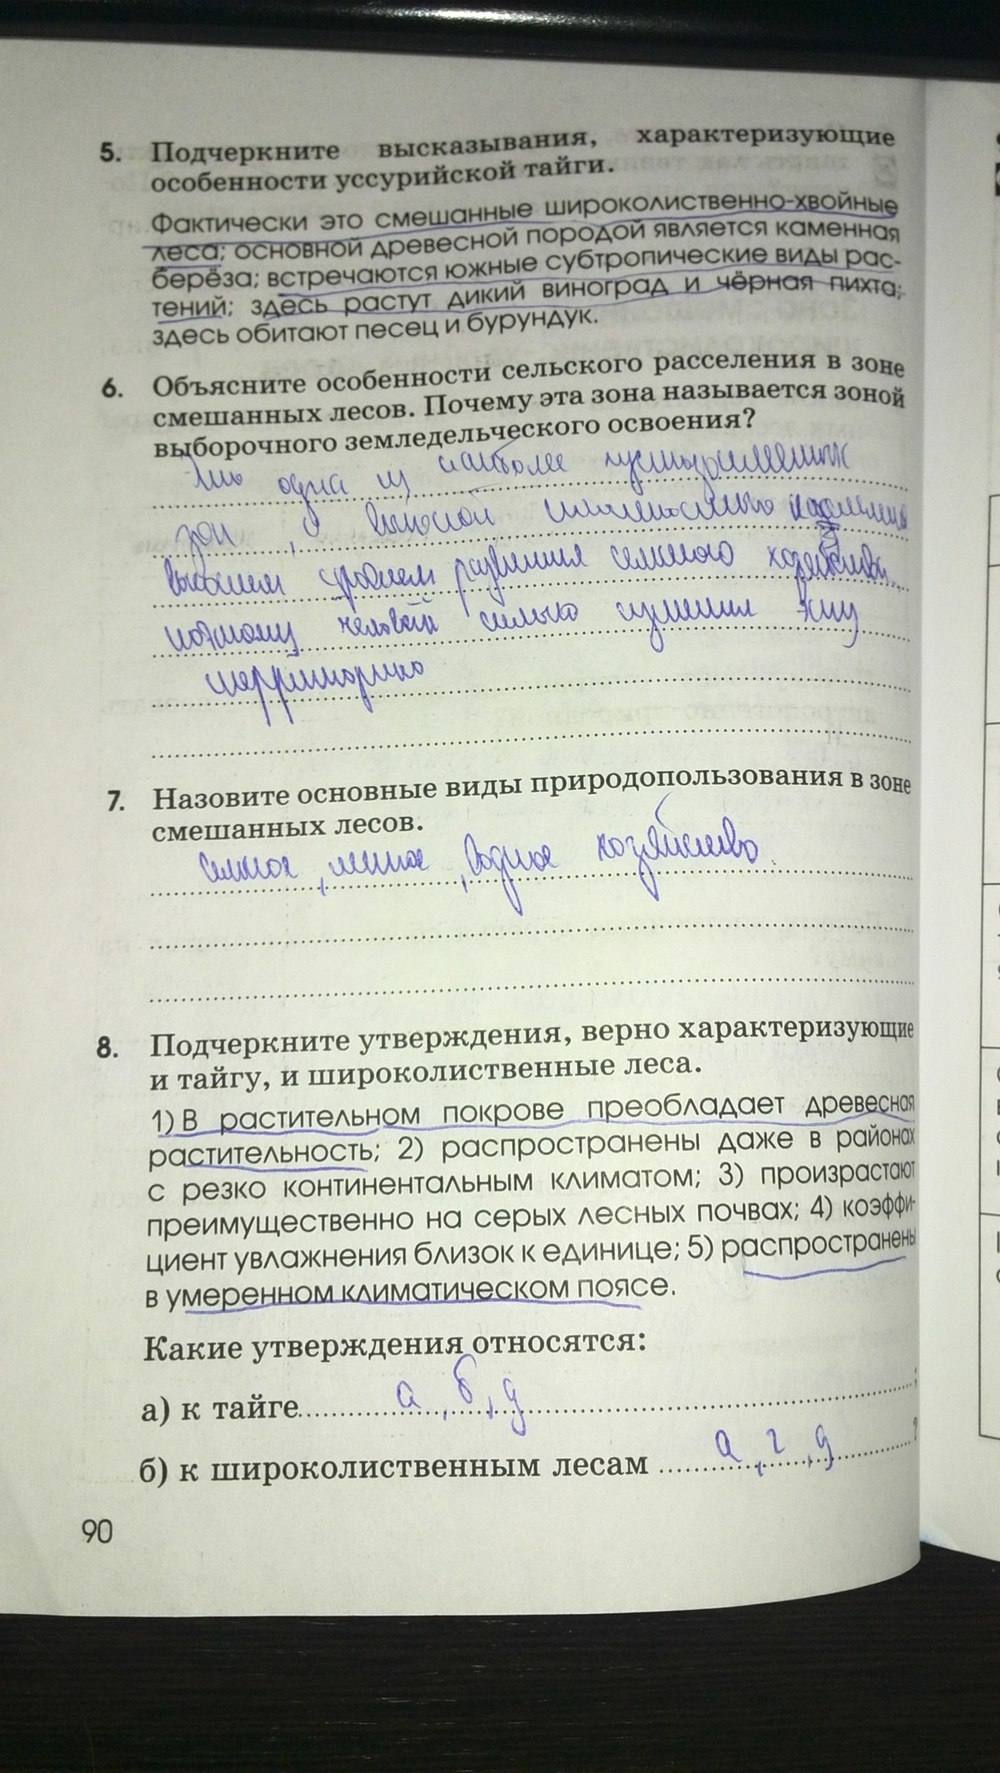 5. Подчеркните высказывания, характеризующие
особенности уссурийской тайги.
Фактически это смешанные широколиственно-хвойные
леса; основной древесной породой является каменная
берёза; встречаются южные субтропические виды рас-
тений; здесь растут дикий виноград и чёрная пихта;
здесь обитают песец и бурундук.
6. Объясните особенности сельского расселения в зоне
смешанных лесов. Почему эта зона называется зоной
выборочного земледельческого освоения?
Это одна из наиболее густозаселенных
зон, с высокой плотностью населения
высоким уровнем развития сельского хозяйства
поэтому человек сильно изменил эту
территорию
7. Назовите основные виды природопользования в зоне
смешанных лесов.
Сельское, лесное, водное хозяйство.
8. Подчеркните утверждения, верно характеризующие
и тайгу, и широколиственные леса.
1) В растительном покрове преобладает древесная
растительность; 2) распространены даже в районах
с резко континентальным климатом; 3) произрастают
преимущественно на серых лесных почвах; 4) коэффи-
циент увлажнения близок к единице; 5) распространены
в умеренном климатическом поясе.
Какие утверждения относятся:
а) к тайге а, б, д ;
б) к широколиственным лесам а, г, д ?
90